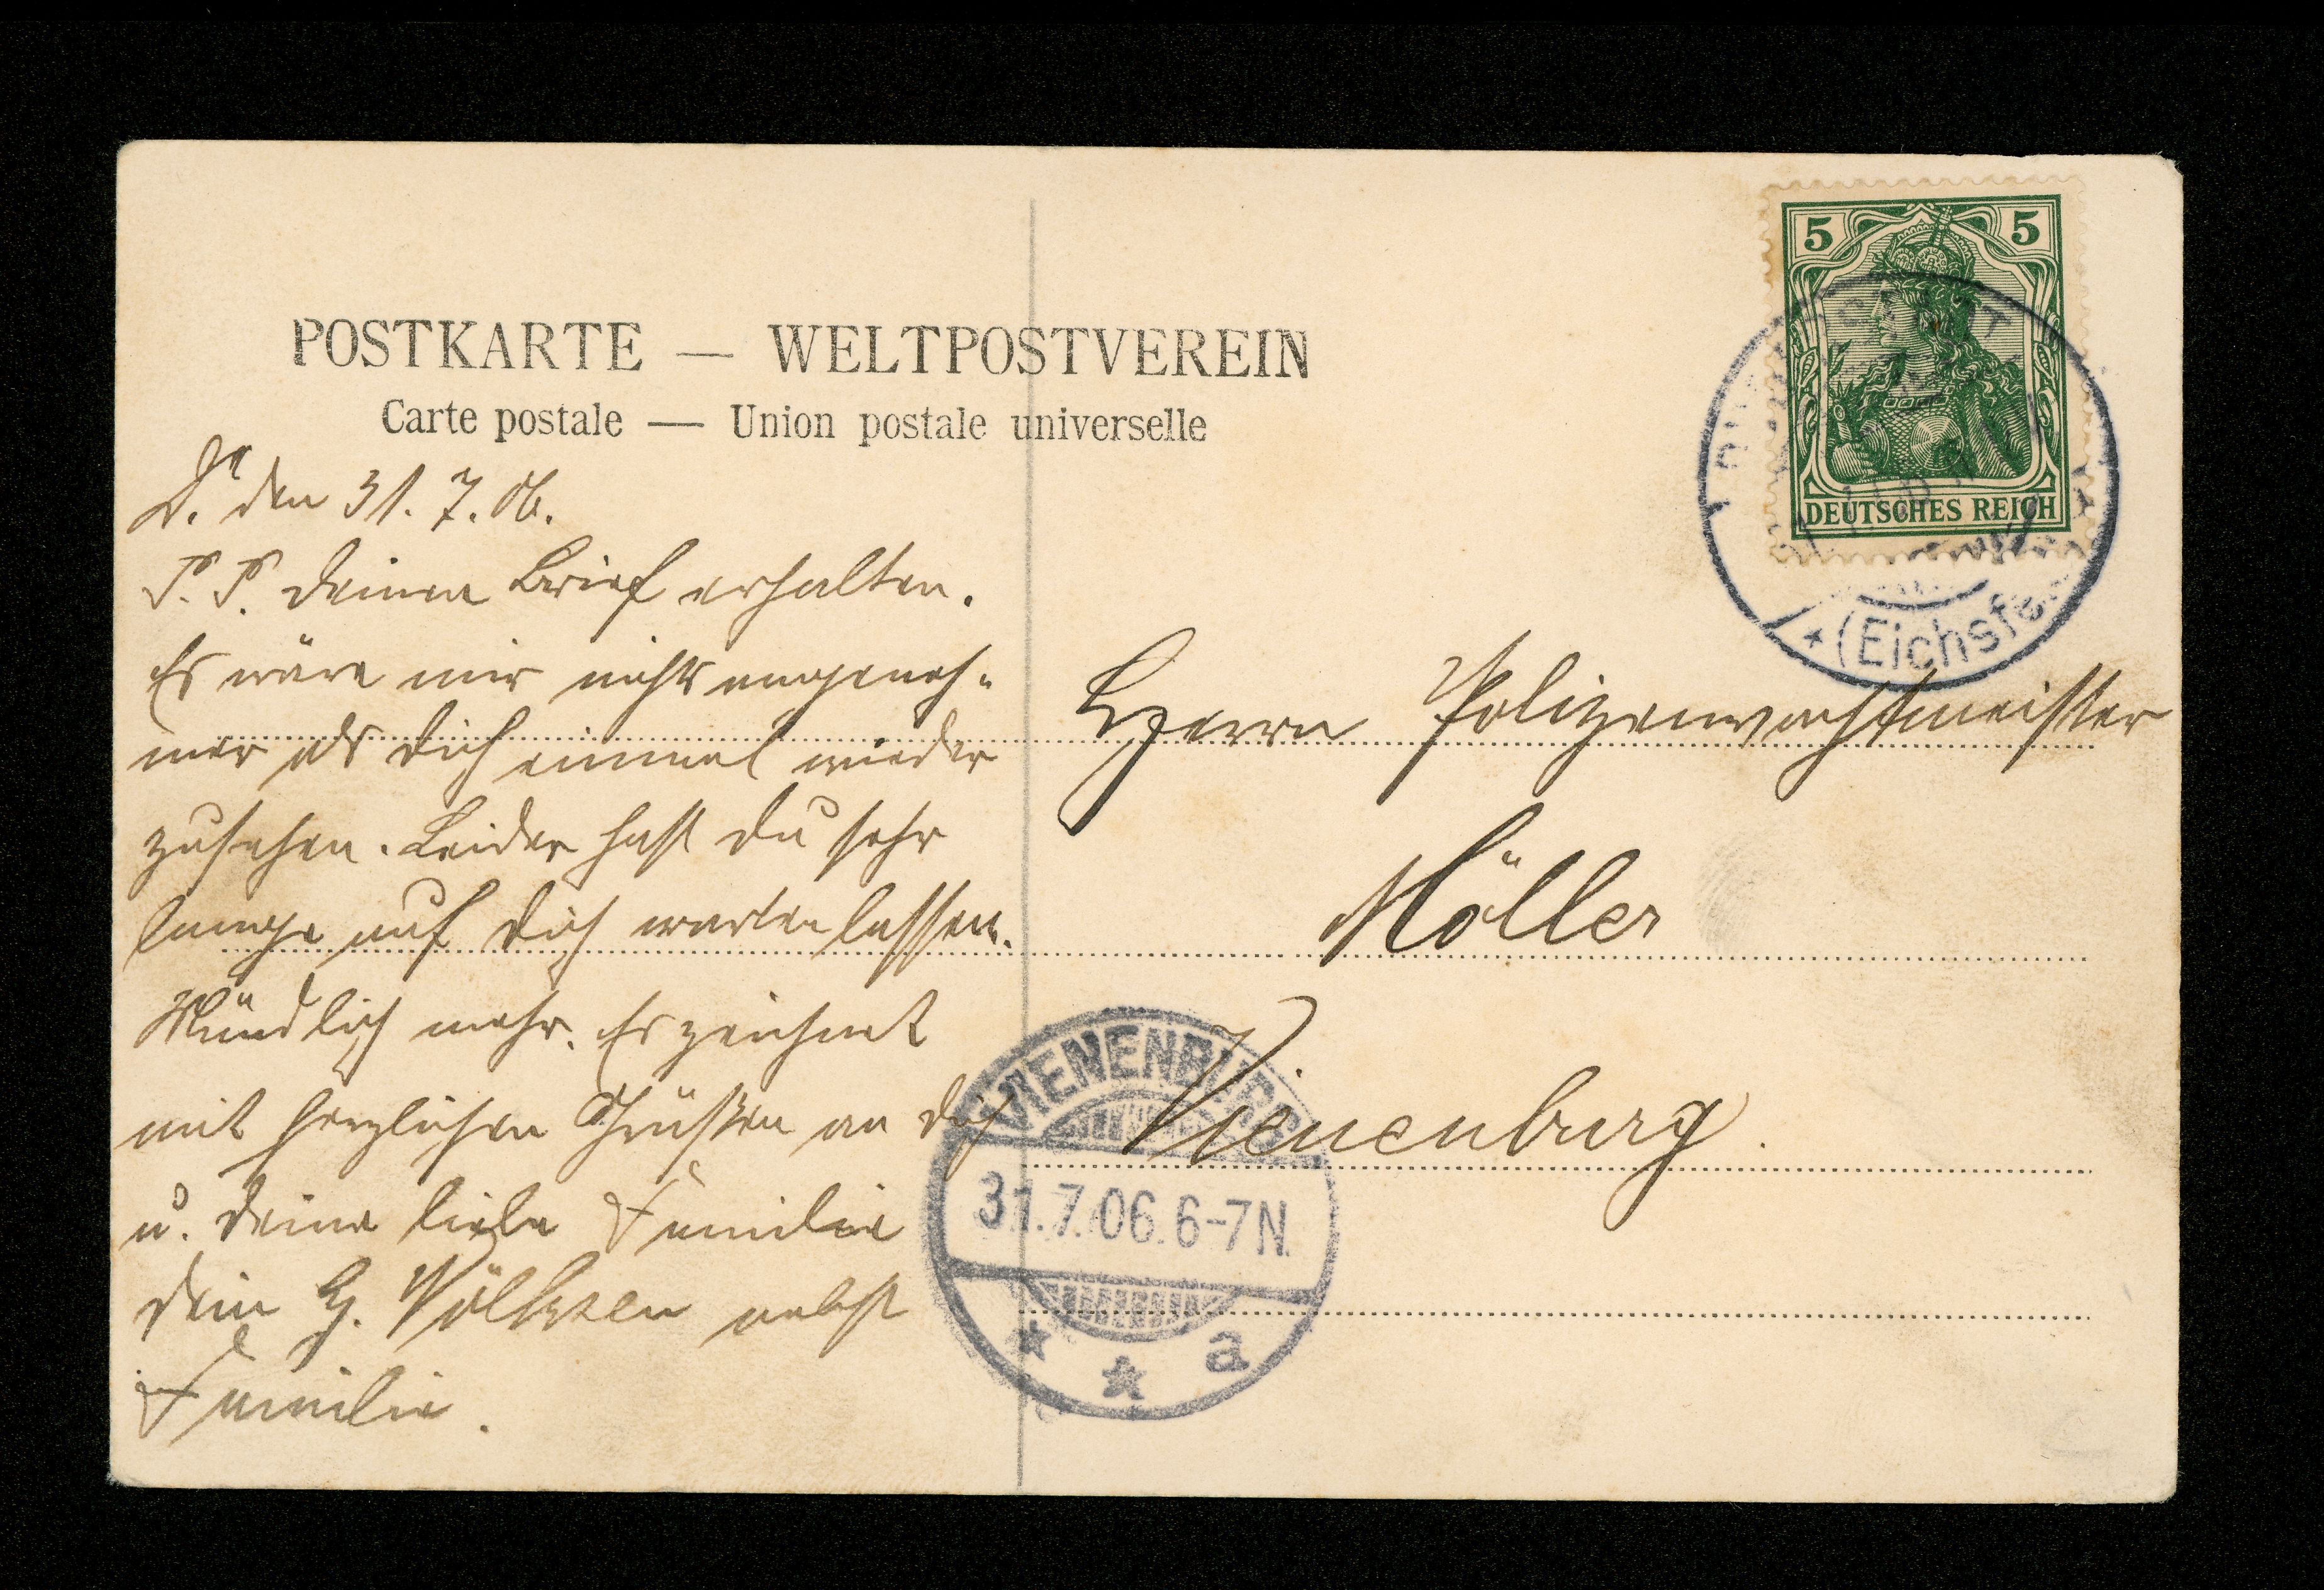 POSTKARTE — WELTPOSTVEREIN
Carte postale — Union postale universelle
5 5
DEUTSCHES REICH
(Eichsfe
D. den 31. 7. 06.
P. P. Deinen Brief erhalten.
Es wäre mir nichts angeneh-
mer als dich einmal wieder
zusehen. Leider hast du sehr
lange auf dich warten lassen.
Mündlich mehr. Es zeichnet
mit herzlichen Grüßen an dich
u. deine liebe Familie
dein H. Völksen nebst
Familie.
Herrn Polizeiwachtmeister
Möller
Vienenburg.
VIENENBURG
31.7.06.6-7N.
* * a